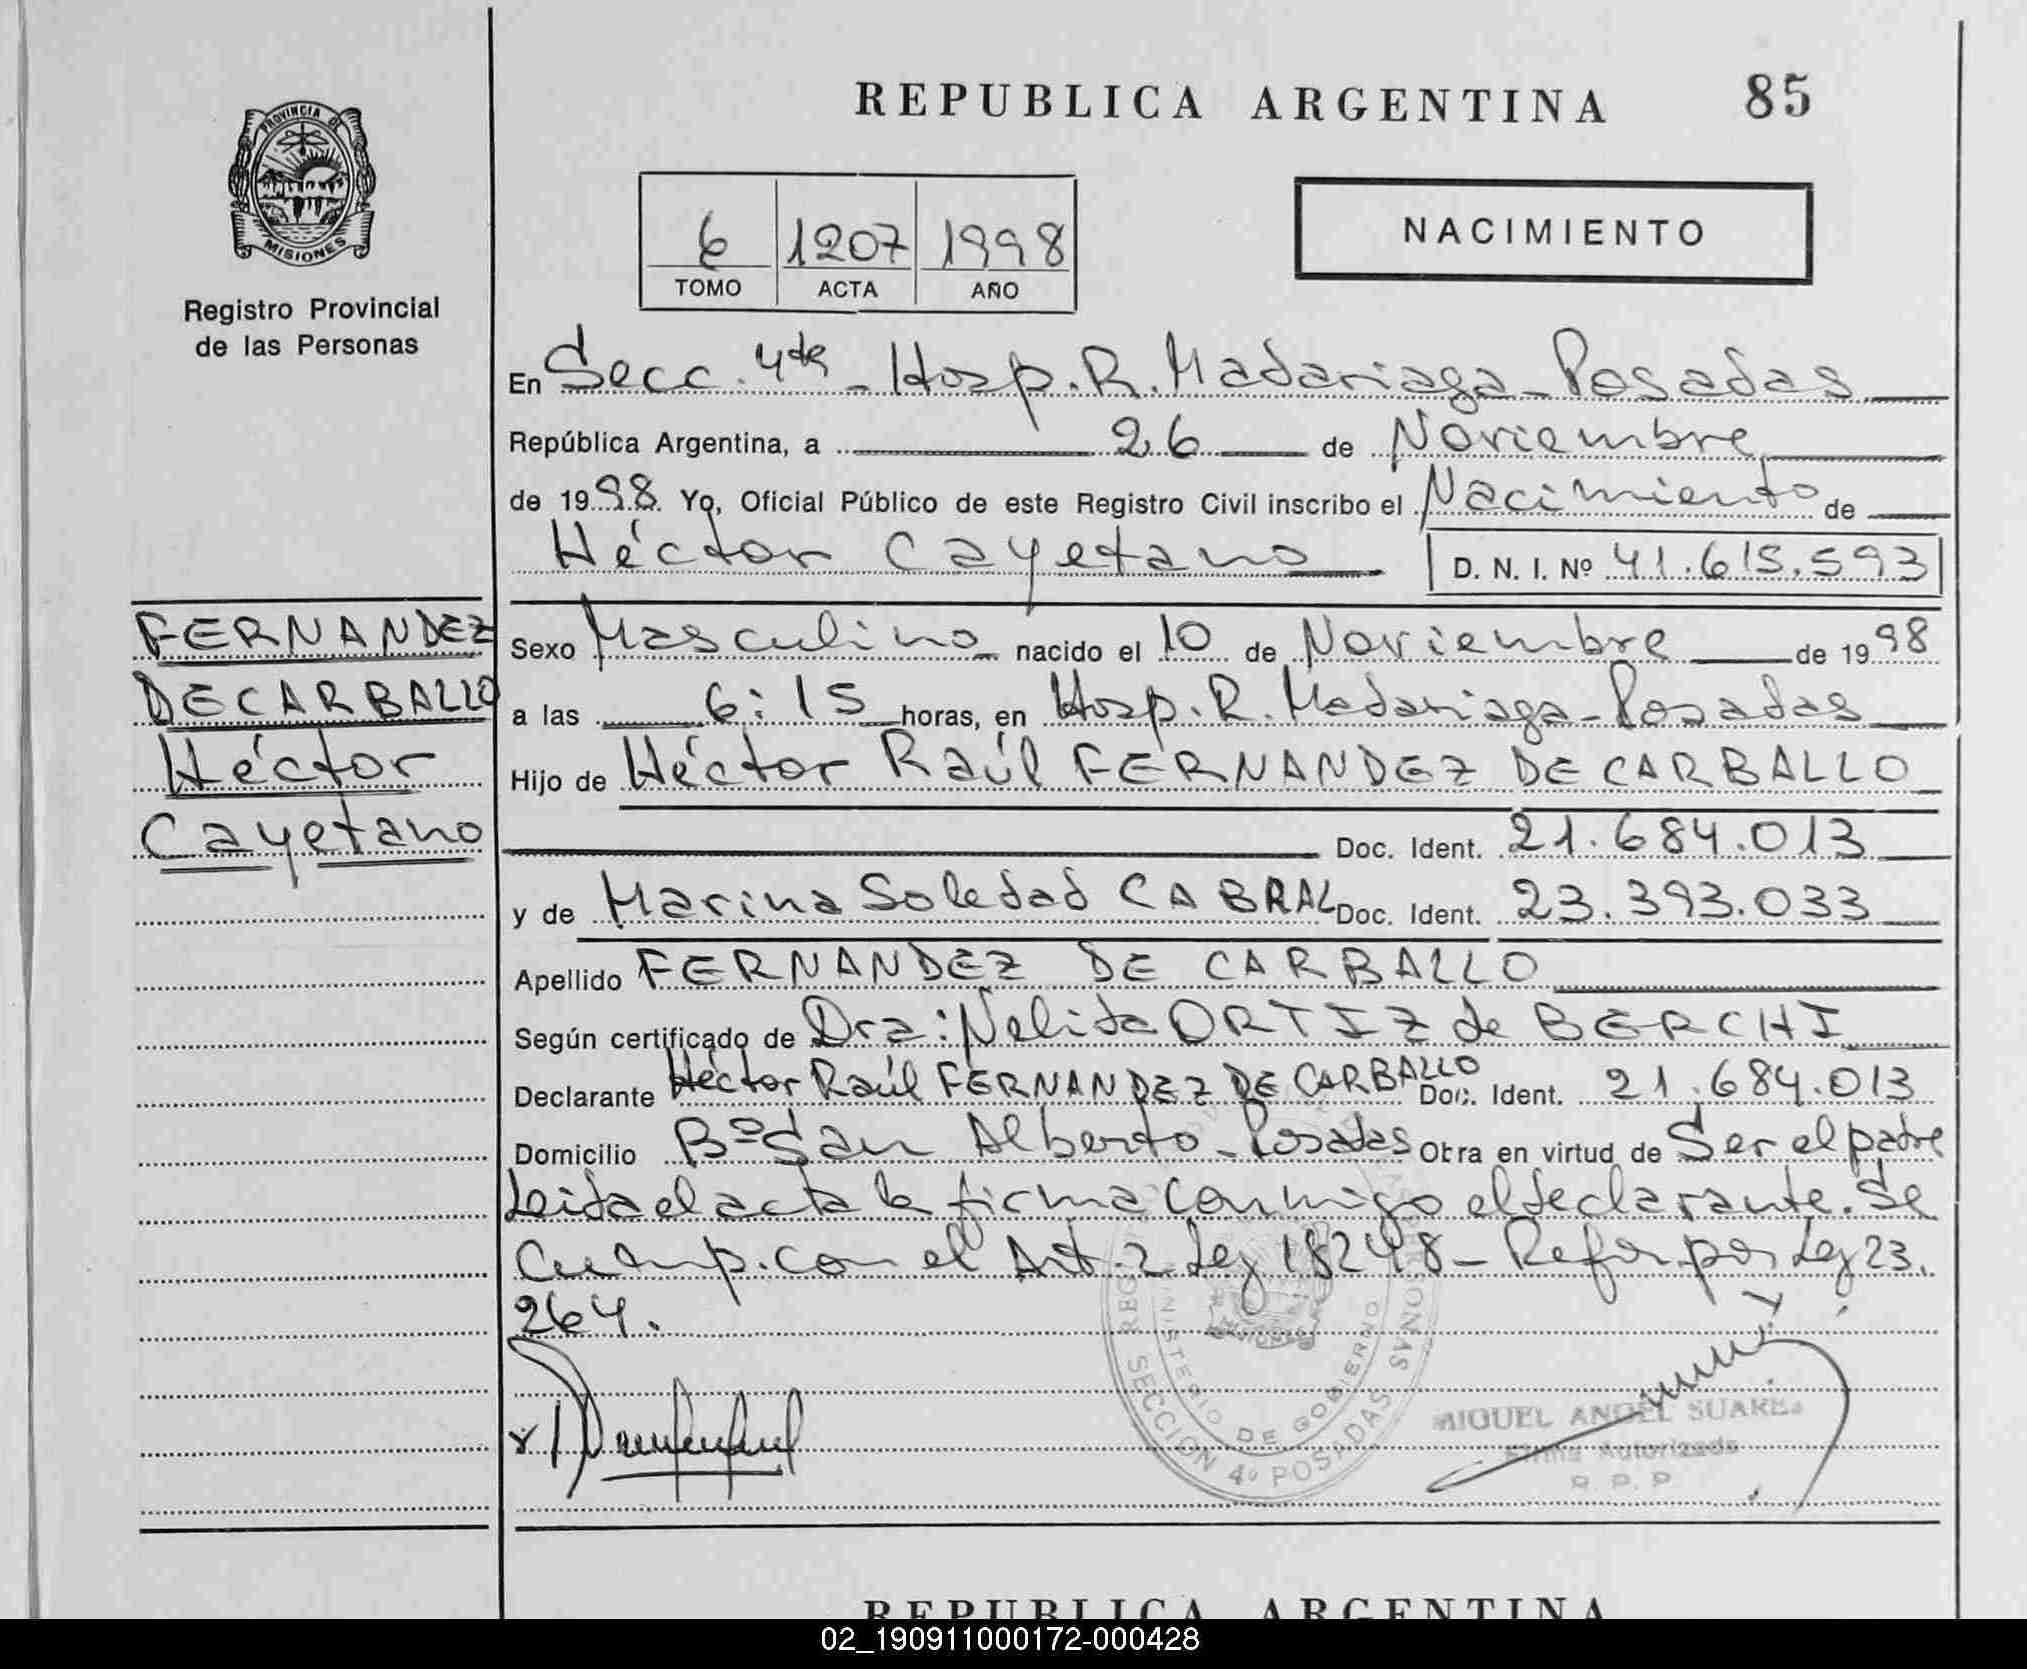 REPUBLICA ARGENTINA 85
PROVINCIA DE
MISIONES
Registro Provincial
de las Personas
6 1207 1998
TOMO ACTA AÑO
NACIMIENTO
En Secc. 4ta - Hosp. R. Madariaga - Posadas
República Argentina, a 26 de Noviembre
de 1998. Yo, Oficial Público de este Registro Civil inscribo el Nacimiento de
Héctor Cayetano D. N. I. Nº 41.615.593
FERNANDEZ
DE CARBALLO
Héctor
Cayetano
Sexo Masculino nacido el 10 de Noviembre de 1998
a las 6:15 horas, en Hosp. R. Madariaga - Posadas
Hijo de Héctor Raúl FERNANDEZ DE CARBALLO
Doc. Ident. 21.684.013
y de Marina Soledad CABRAL Doc. Ident. 23.393.033
Apellido FERNANDEZ DE CARBALLO
Según certificado de Dra: Nelida ORTIZ de BERCHI
Declarante Héctor Raúl FERNANDEZ DE CARBALLO Doc. Ident. 21.684.013
Domicilio Bº San Alberto - Posadas Obra en virtud de Ser el padre
Leida el acta la firma conmigo el declarante. Se
Cump. con el Art. 2 Ley 18248 - Refor. por Ley 23.
264.
MINISTERIO DE GOBIERNO
SECCION 4º POSADAS
MIGUEL ANGEL SUAREZ
Firma Autorizada
R. P. P.
REPUBLICA ARGENTINA
02_190911000172-000428